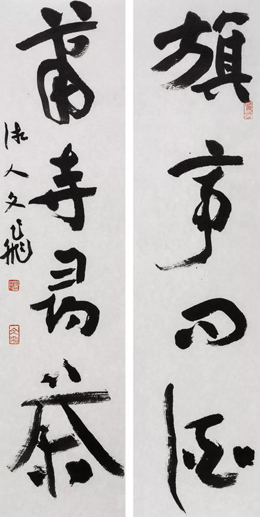 旗亭問酒
蕭寺尋茶
人文飛